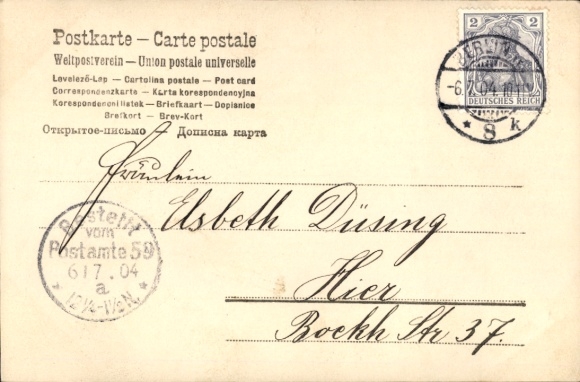 Postkarte — Carte postale
Weltpostverein — Union postale universelle
Levelező-Lap — Cartolina postale — Post card
Correspondenzkarte — Karta korespondencyjna
Korespondenční lístek — Briefkaart — Dopisnice
Brefkort — Brev-Kort
Открытое-письмо — Дописна карта
2 2
DEUTSCHES REICH
BERLIN
-6.7.04.
* 8 k
Fräulein
Elsbeth Düsing
Hier
Boekh Str 37.
Bestellt
vom
Postamte 59
6 17 . 04
a
* 12¼-1½N. *